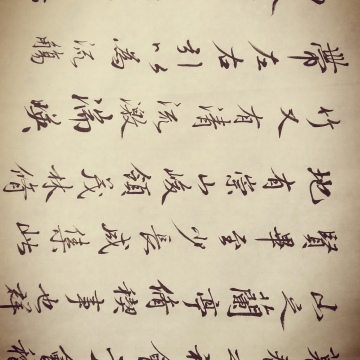 山之蘭亭脩稧事也群
賢畢至少長咸集此
地有崇山峻領茂林脩
竹又有清流激湍暎
帶左右引以為流觴